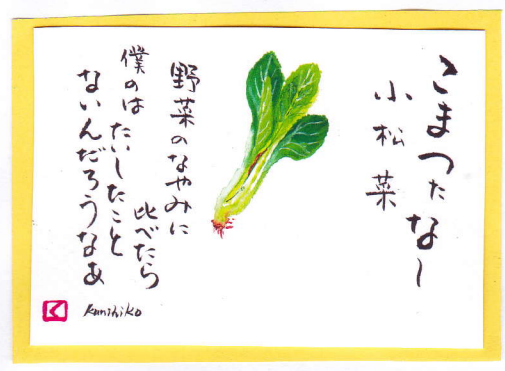 こまつたなー
小松菜
野菜のなやみに
比べたら
僕のはたいしたこと
ないんだろうなあ
く Kunihiko